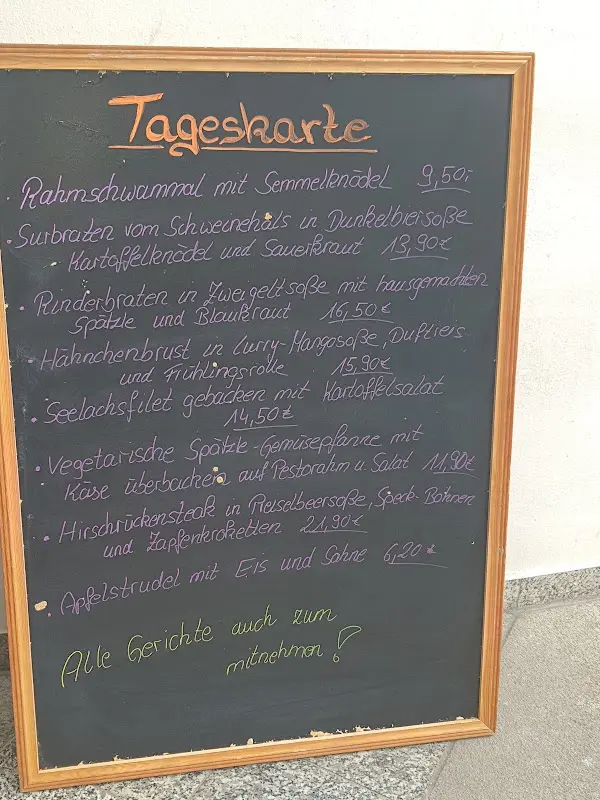 Tageskarte
· Rahmschwammal mit Semmelknödel 9,50,-
· Surbraten vom Schweinehals in Dunkelbiersoße
Kartoffelknödel und Sauerkraut 13,90€
· Rinderbraten in Zweigeltsoße mit hausgemachten
Spätzle und Blaukraut 16,50€
· Hähnchenbrust in Curry-Mangosoße, Duftreis
und Frühlingsrolle 15,90€
· Seelachsfilet gebacken mit Kartoffelsalat
14,50€
· Vegetarische Spätzle-Gemüsepfanne mit
Käse überbacken auf Pestorahm u. Salat 11,90€
· Hirschrückensteak in Preiselbeersoße, Speck-Bohnen
und Zapfenkroketten 21,90€
· Apfelstrudel mit Eis und Sahne 6,20€
Alle Gerichte auch zum
mitnehmen!